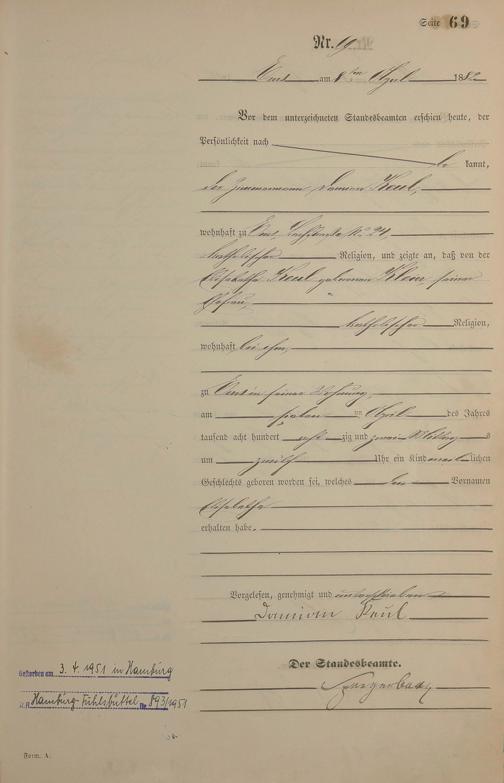 Seite 69
Nr. 69
Ems am 8ten April 1882
Vor dem unterzeichneten Standesbeamten erschien heute, der
Persönlichkeit nach
be kannt,
der Zimmermann Damian Keul,
wohnhaft zu Ems, No 24,
katholischer Religion, und zeigte an, daß von der
Elisabetha Keul geborenen Klein seiner
Ehefrau,
katholischer Religion,
wohnhaft bei ihm,
zu Ems in seiner Wohnung
am ten April des Jahres
tausend acht hundert acht zig und zwei Mittags
um zwölf Uhr ein Kind weiblichen
Geschlechts geboren worden sei, welches den Vornamen
Elisabetha
erhalten habe.
Vorgelesen, genehmigt und unterschrieben
Damian Keul
Der Standesbeamte.
Gestorben am 3. 4. 1951 in Hamburg
Hamburg-Fuhlsbüttel Nr. 893/1951
Form. A.